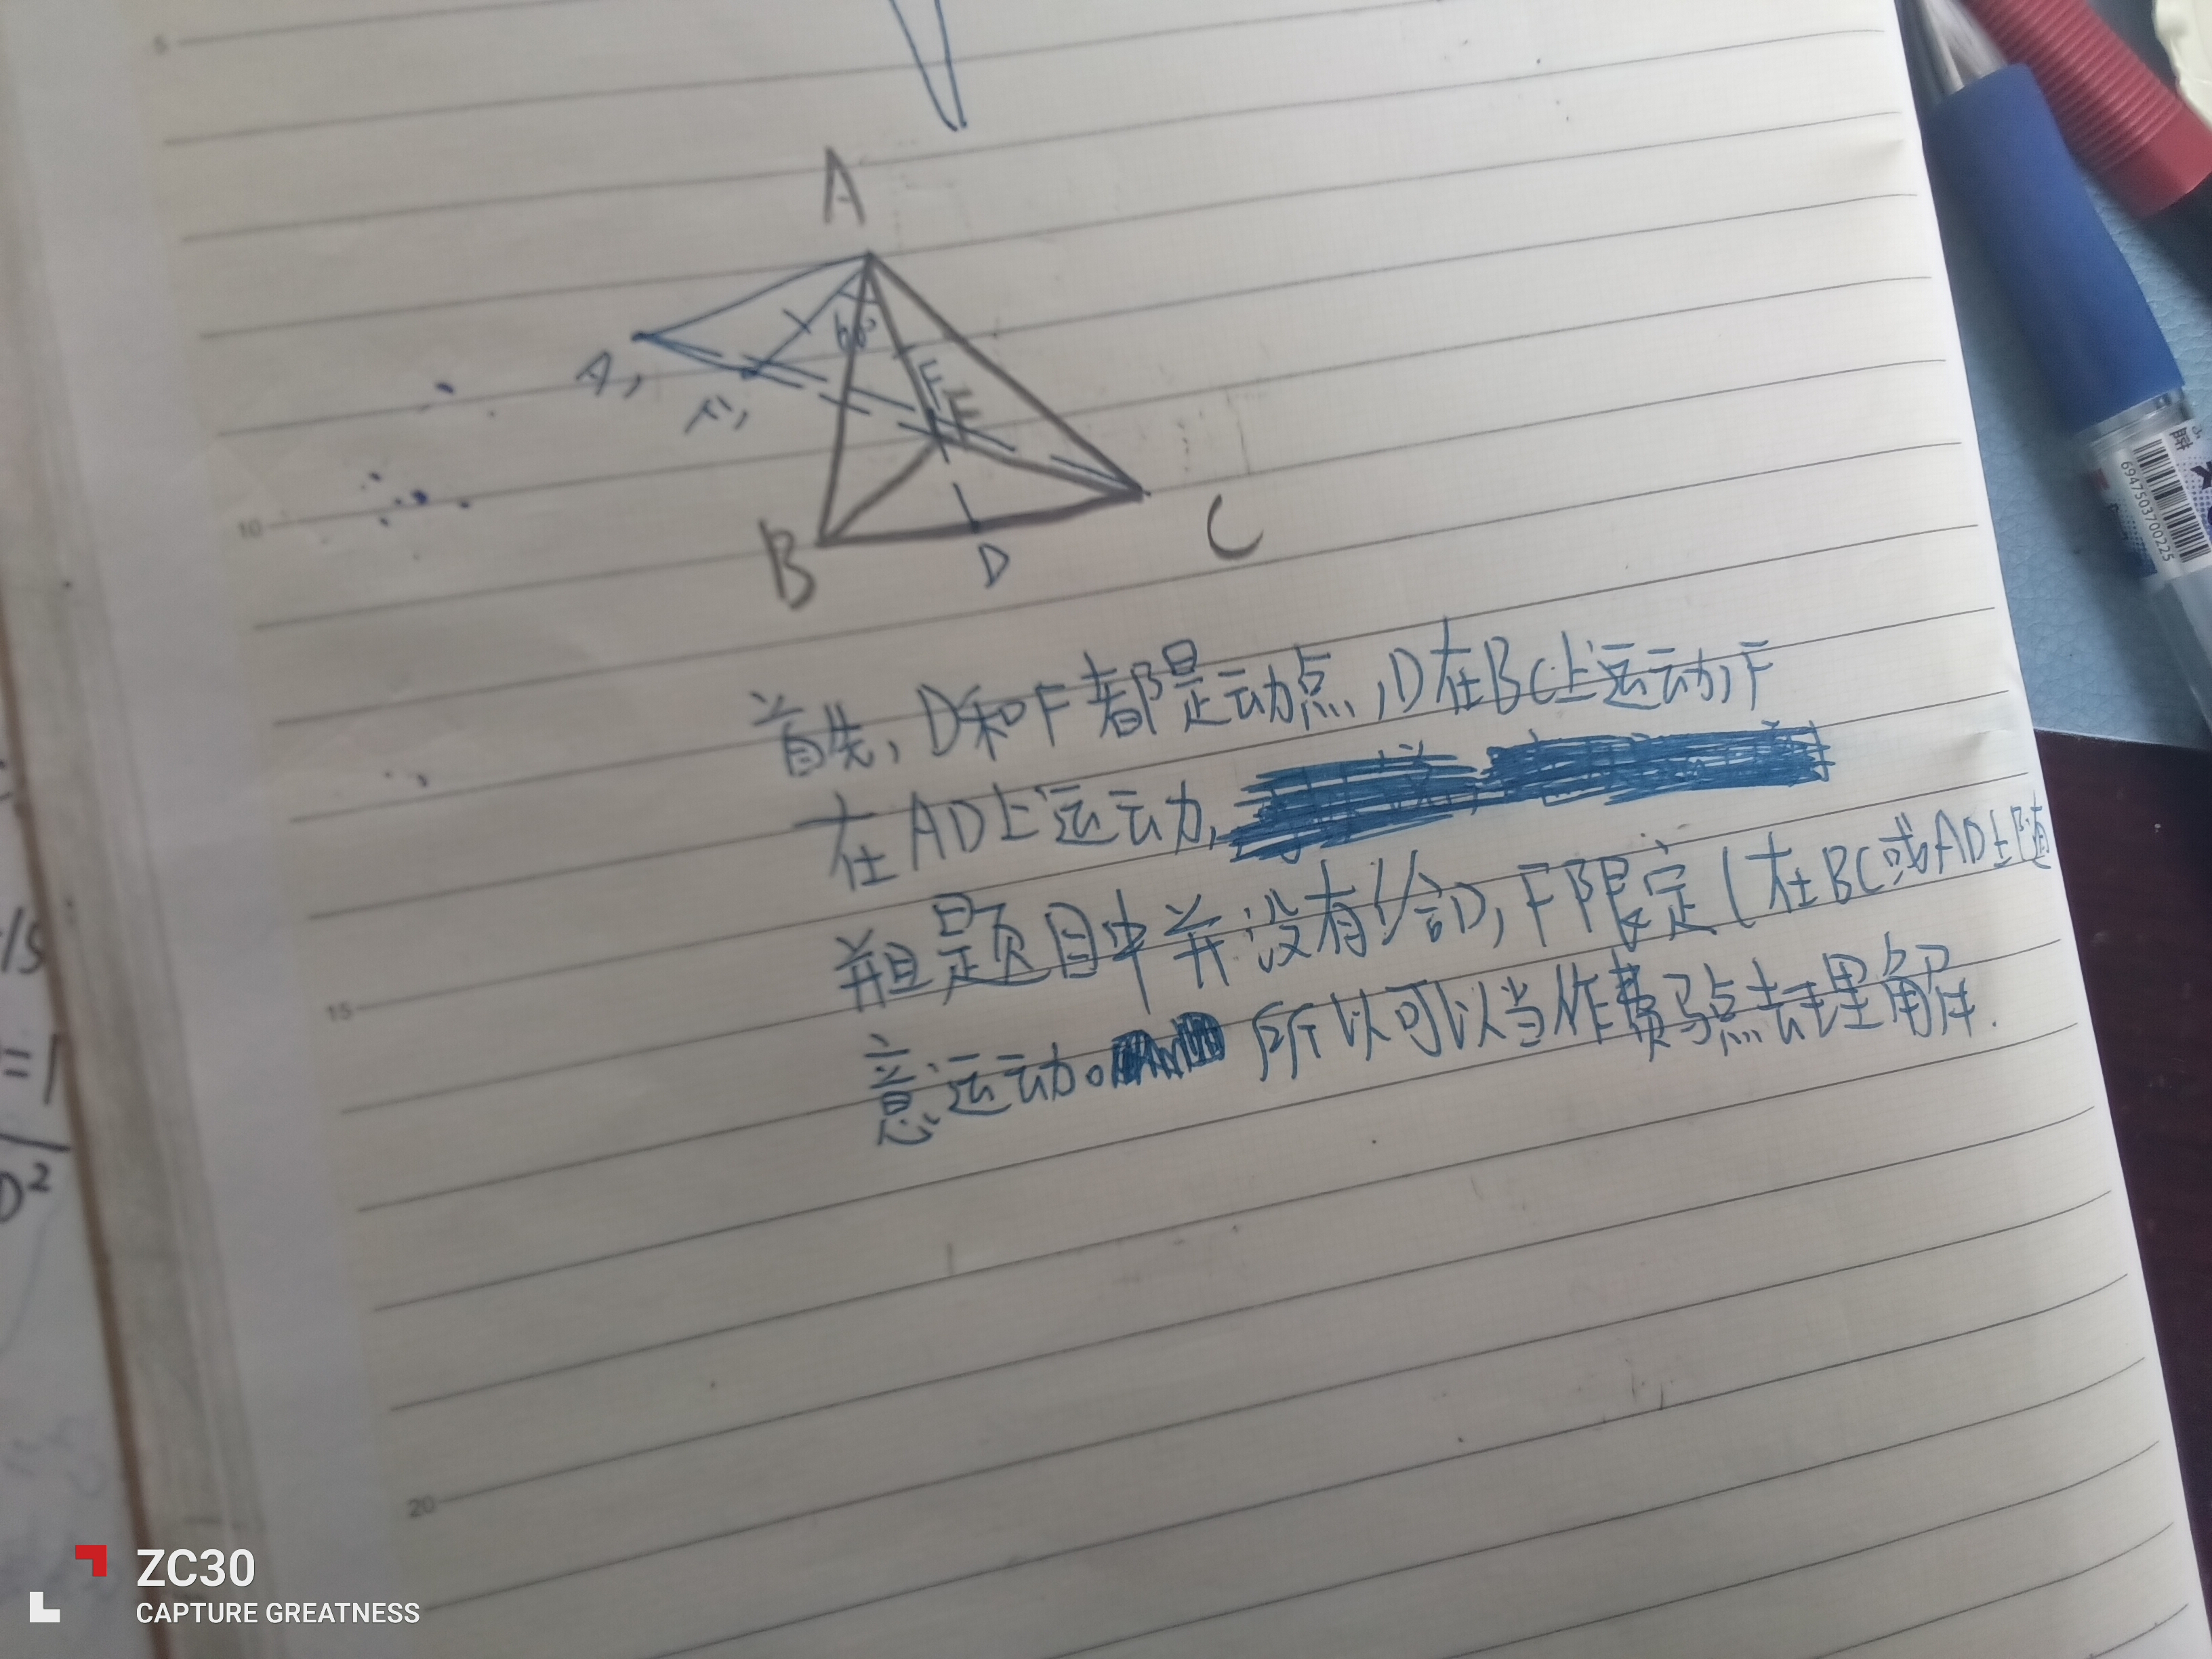 5
A
60°
A'
F'
F
E
10
B
D
C
首先,D和F都是动点,D在BC上运动,F
在AD上运动,
并且题目中并没有给D,F限定(在BC或AD上随
意运动。所以可以当作费马点去理解.
15
=1
20
ZC30
CAPTURE GREATNESS
6947503700225